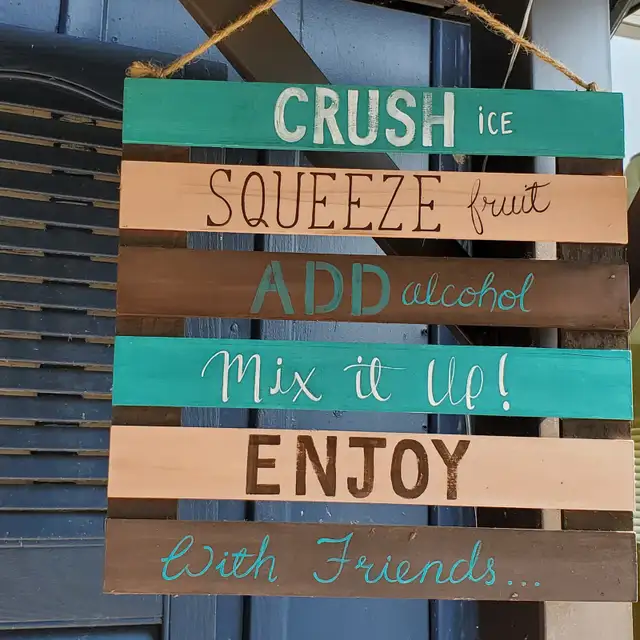 CRUSH iCE
SQUEEZE fruit
ADD alcohol
Mix it Up!
ENJOY
With Friends...